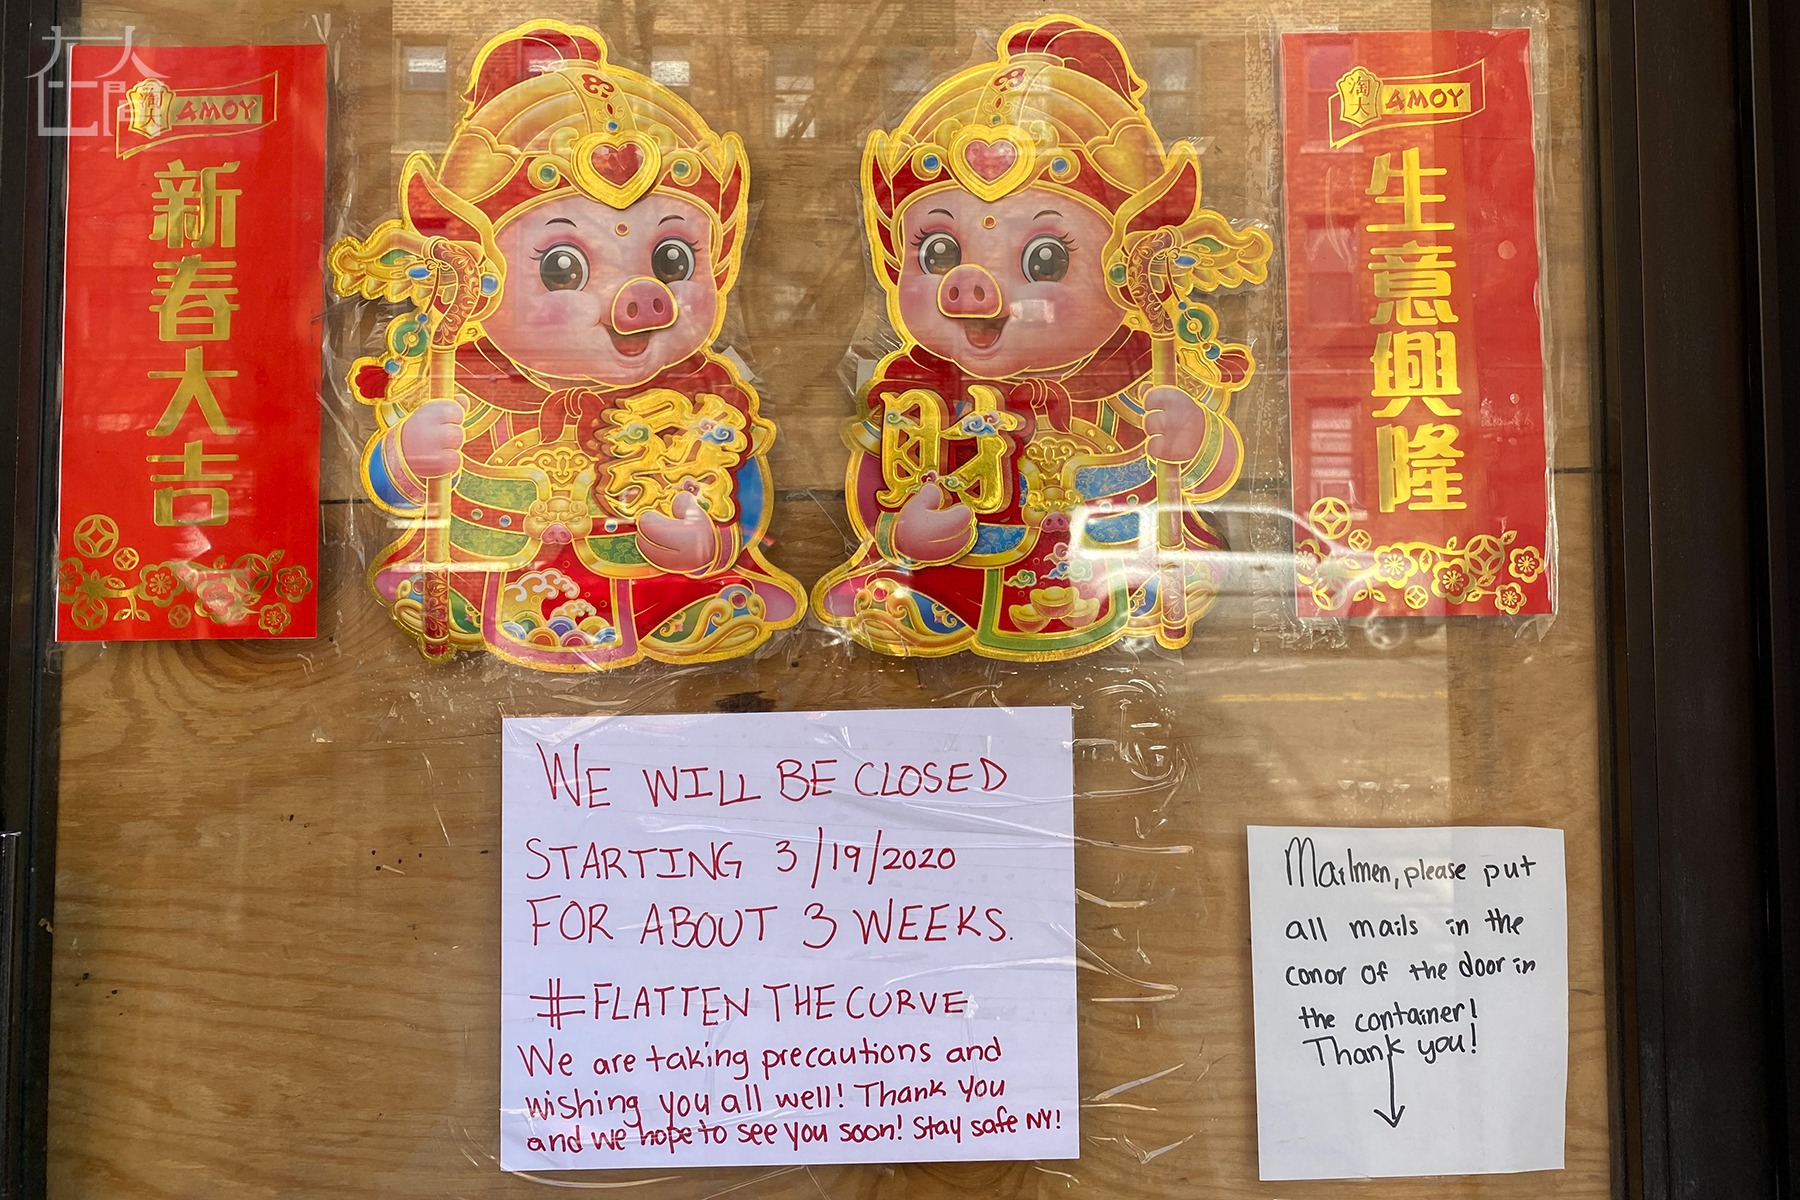 在人間
淘大 AMOY
新春大吉
發
財
淘大 AMOY
生意興隆
WE WILL BE CLOSED
STARTING 3/19/2020
FOR ABOUT 3 WEEKS.
#FLATTEN THE CURVE
We are taking precautions and
wishing you all well! Thank you
and we hope to see you soon! Stay safe NY!
Mailmen, please put
all mails in the
conor of the door in
the container!
Thank you!